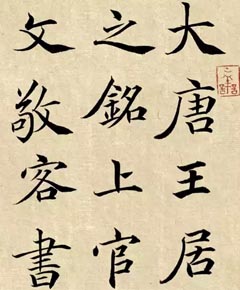 大唐王居
之銘上官
文敬客書